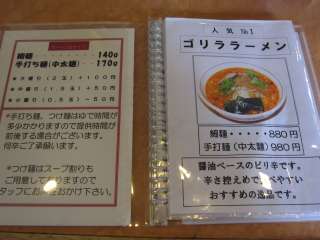 細麺・・・・・140g
手打ち麺(中太麺)・・170g
*大盛り(2玉)+100円
*中盛り(1.5玉)+50円
*小盛り(0.5玉)-50円
*手打ち麺、つけ麺はゆで時間が
多少かかりますので提供時間が
前後する場合がございます。
何卒ご了承願います。
*つけ麺はスープ割りも
ご用意しておりますので
スタッフにお声をおかけ下さい。
人気 No1
ゴリララーメン
細麺・・・・・880円
手打麺(中太麺)980円
醤油ベースのピリ辛です。
辛さ控えめで食べやすい
おすすめの逸品です。